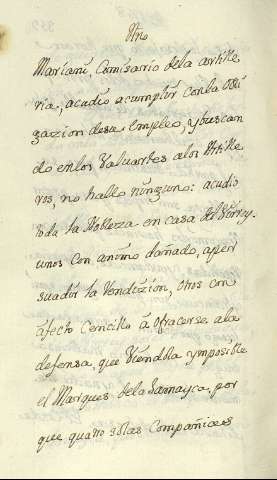 Mariani, Comisario dela artille
ria, acudio acumplir conla obli
gazion desu Empleo, y buscan
do enlos Valuartes alos Artille
ros, no hallo ninguno: acudio
toda la Nobleza en casa del Virrey.
unos con animo dañado, aper
suadir la Rendizion, otros con
afecto Cencillo à ofrecerse ala
defensa, que Viendola ymposible
el Marques dela Jamayca, por
que quatro solas Compañias